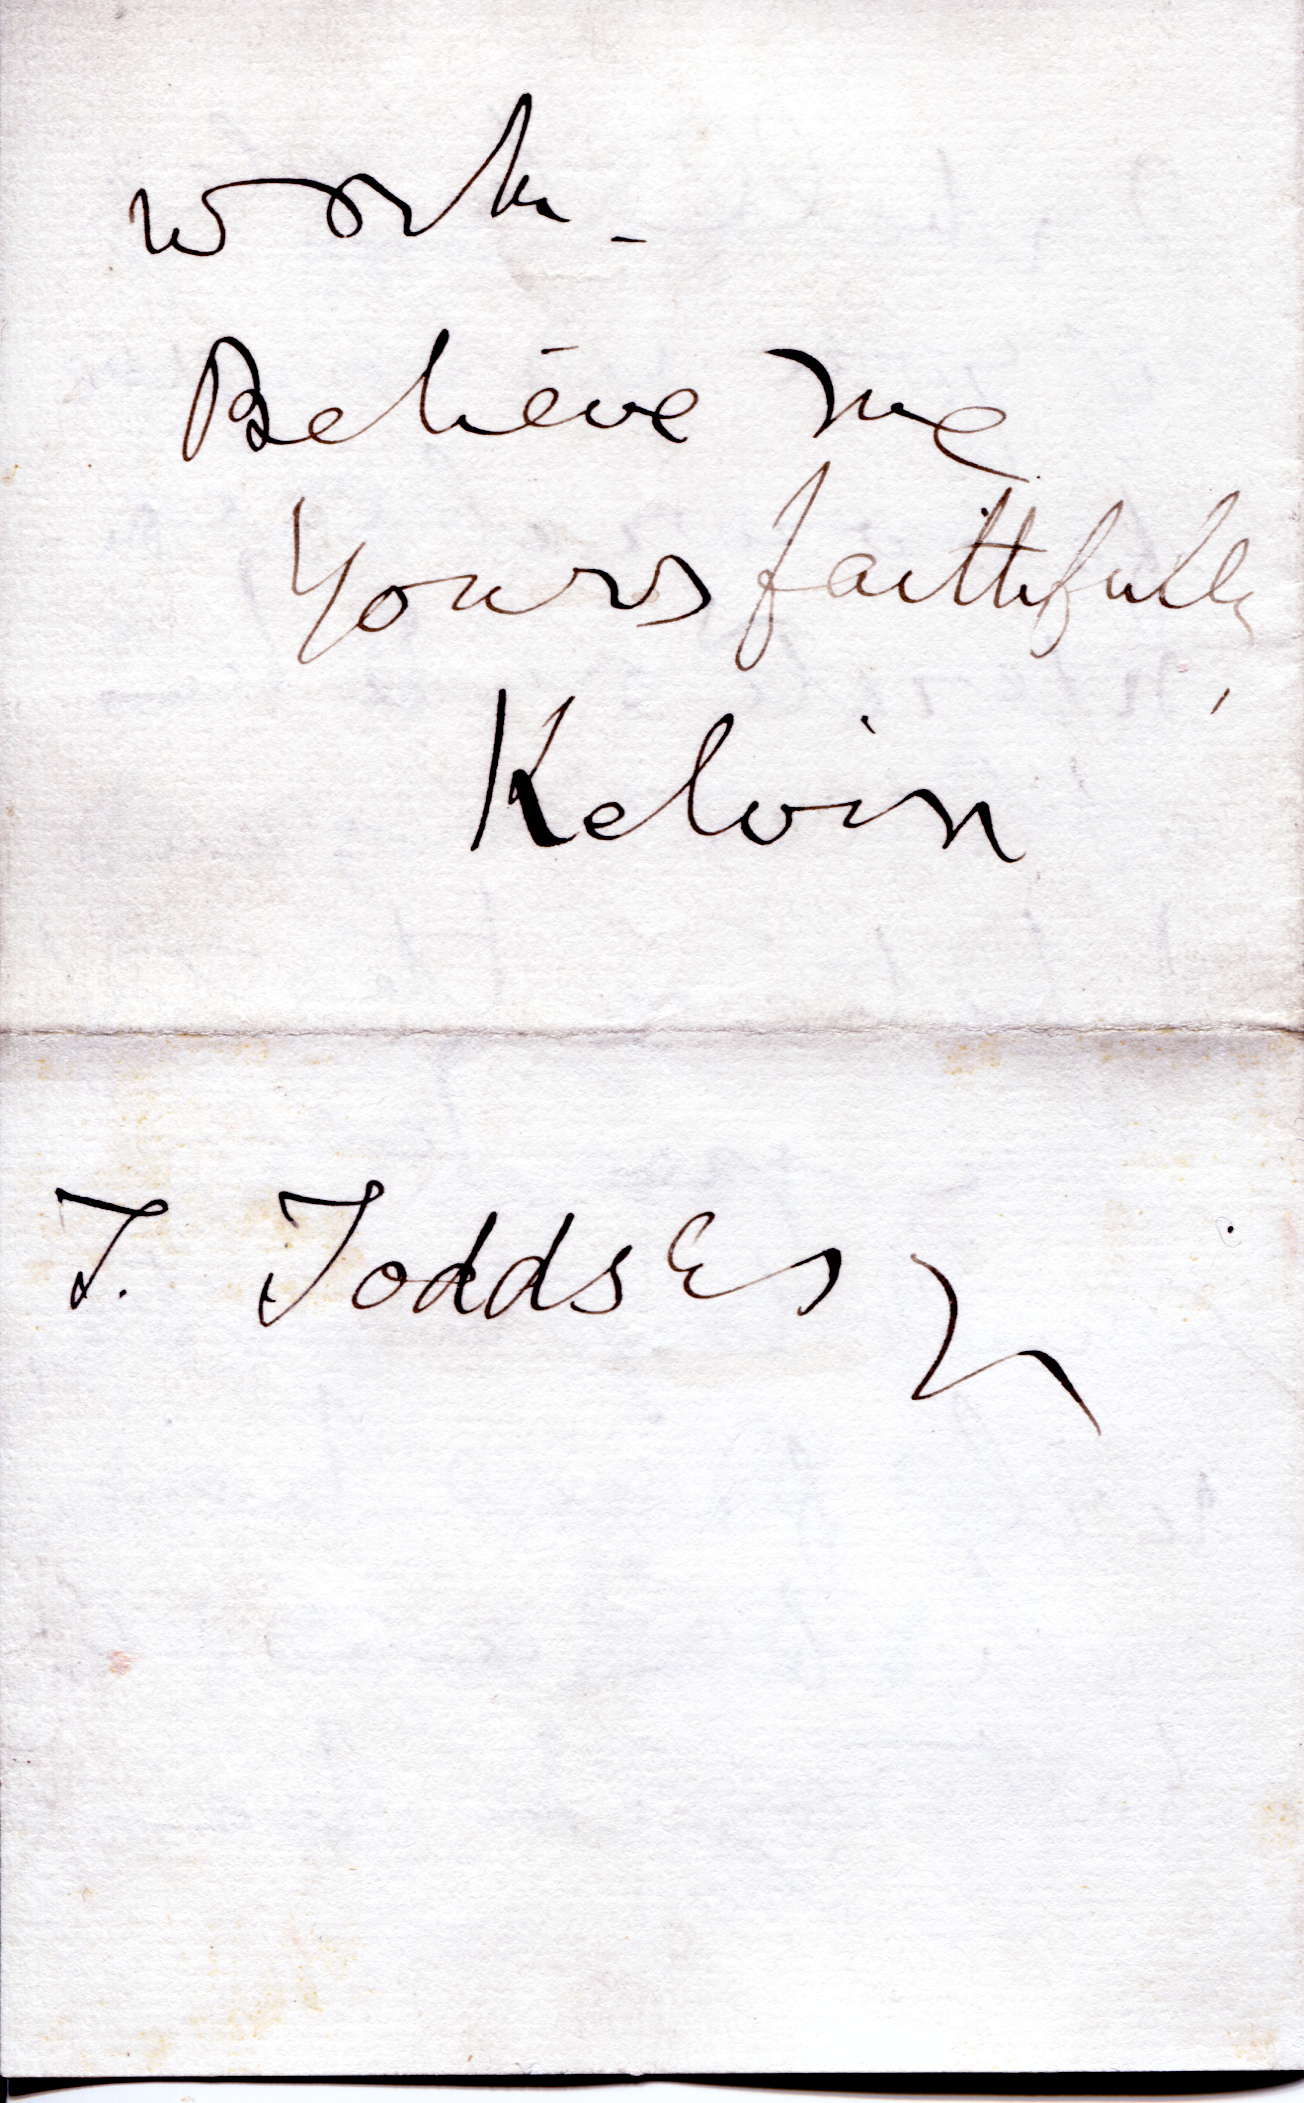 work -
Believe me
Yours faithfully,
Kelvin
T. Todds Esq